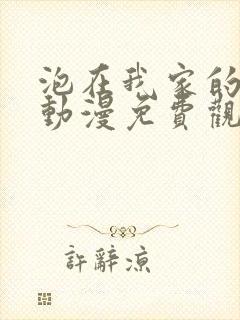 泡在我家的
動漫免費觀
許辭涼